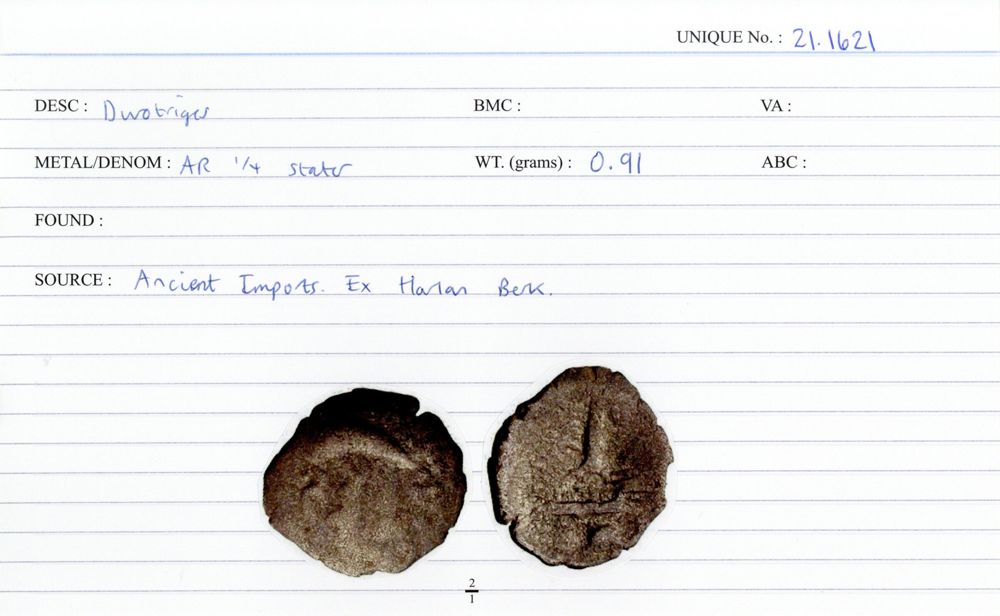 UNIQUE No. : 21.1621
DESC : Durotriges BMC : VA :
METAL/DENOM : AR 1/4 stater WT. (grams) : 0.91 ABC :
FOUND :
SOURCE : Ancient Imports. Ex Harlan Berk.
2
1